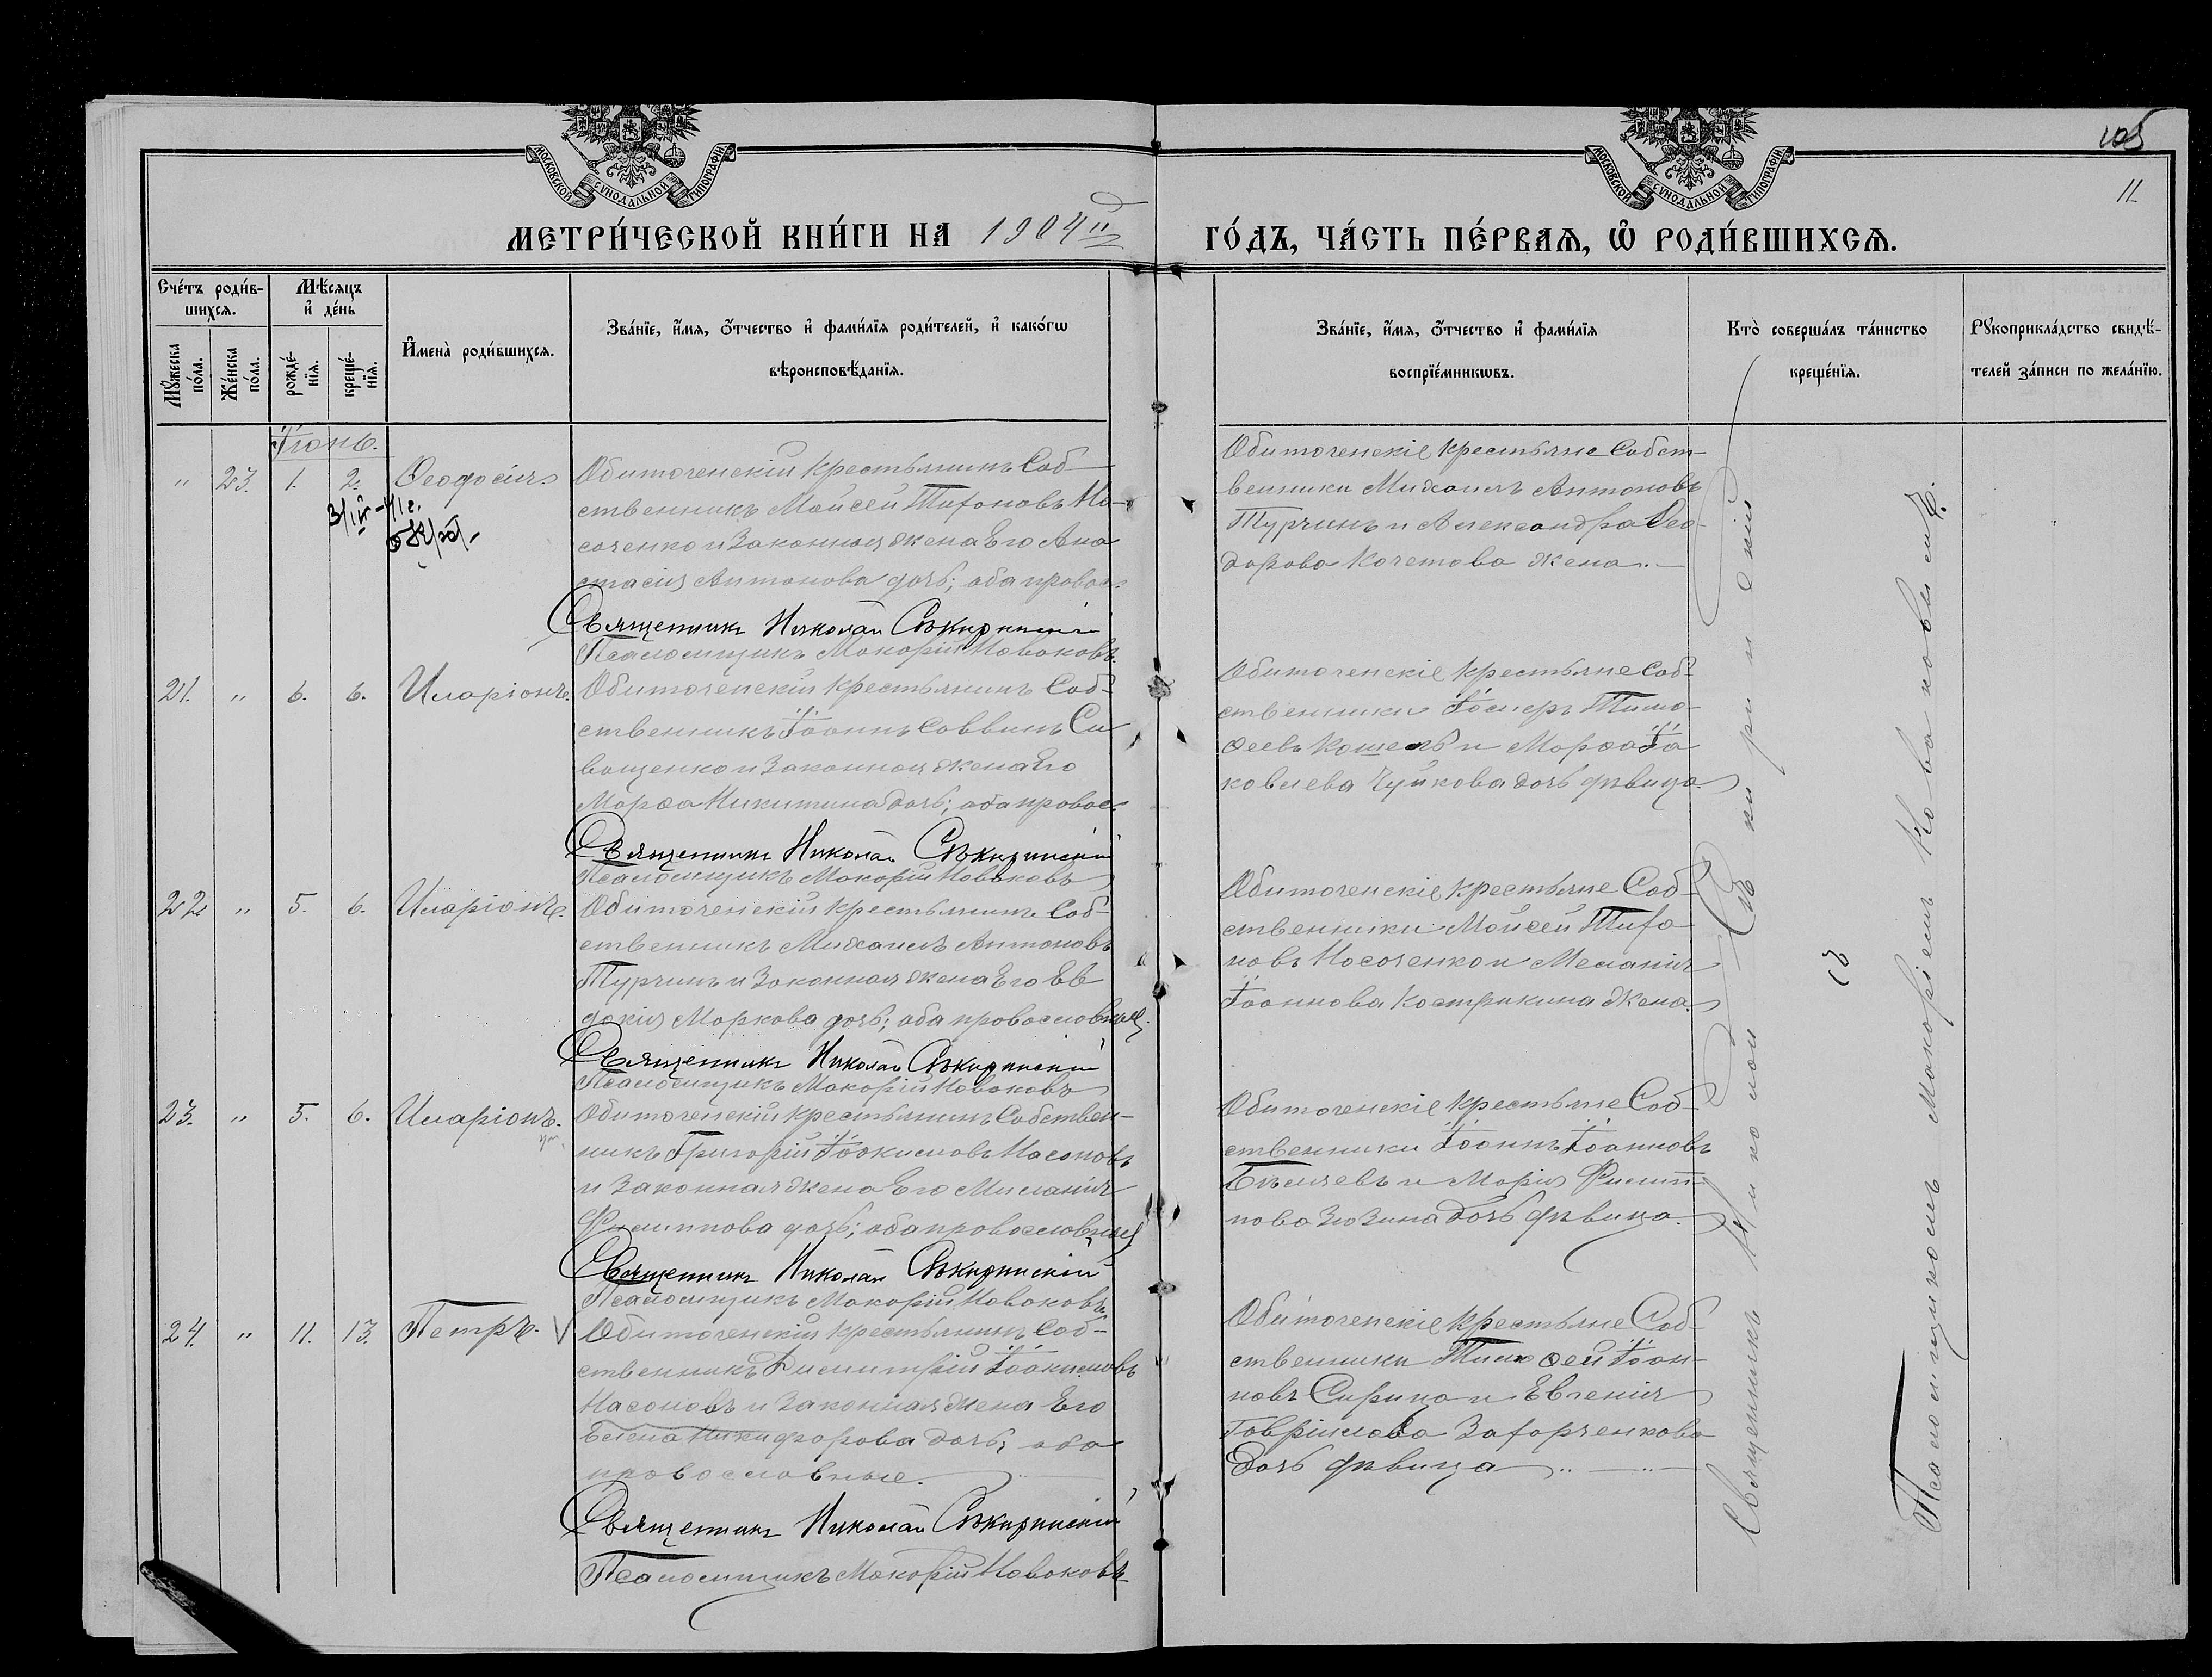 МОСКОВСКОЙ СУНОДАЛЬНОЙ ТИПОГРАФІИ
МОСКОВСКОЙ СУНОДАЛЬНОЙ ТИПОГРАФІИ
105
11
МЕТРИ́ЧЕСКОЙ КНИ́ГИ НА 1904й
ГО́ДЪ, ЧА́СТЬ ПЕ́РВАѦ, Ѽ РОДИ́ВШИХСѦ.
Сче́тъ роди́в-
шихсѧ.
Мꙋ́жеска по́ла.
Же́нска по́ла.
Мѣ́сѧцъ
и҆ де́нь
рожде́-
нїѧ.
креще́-
нїѧ.
И҆мена̀ роди́вшихсѧ.
Зва́нїе, и҆́мѧ, ѻ҆́тчество и҆ фами́лїѧ роди́телей, и҆ како́гѡ
вѣроисповѣ́данїѧ.
Зва́нїе, и҆́мѧ, ѻ҆́тчество и҆ фами́лїѧ
воспрїе́мникѡвъ.
Кто̀ соверша́лъ та́инство
креще́нїѧ.
Рꙋкоприкла́дство свидѣ́-
телей за́писи по жела́нїю.
Іюнь.
" 23. 1. 2. Ѳеодосія
Обиточенскій крестьянинъ Соб-
ственникъ Мойсей Тифоновъ Но-
соченко и Законная жена Его Ана
стасія Антонова дочь; оба правос.
Священникъ Николай Сѣкиринскій
Псаломщикъ Макорій Новаковъ.
Обиточенскіе крестьяне Собст-
венники Михаилъ Антоновъ
Турчинъ и Александра Ѳео-
дорова Кочетова жена.
21. " 6. 6. Иларіонъ.
Обиточенскій крестьянинъ Соб-
ственникъ Іоаннъ Саввинъ Си
ващенко и Законная жена Его
Марѳа Никитина дочь; оба правос.
Священникъ Николай Сѣкиринскій
Псаломщикъ Макорій Новаковъ
Обиточенскіе крестьяне Соб-
ственники Іосифъ Тимо-
ѳеевъ Кошель и Марѳа Іа
ковлева Чуйкова дочь дѣвица.
22. " 5. 6. Иларіонъ.
Обиточенскій крестьянинъ Соб-
ственникъ Михаилъ Антоновъ
Турчинъ и Законная жена Его Ев
докія Маркова дочь; оба православные.
Священникъ Николай Сѣкиринскій
Псаломщикъ Макорій Новаковъ
Обиточенскіе крестьяне Соб-
ственники Мойсей Тифо
новъ Носоченко и Меланія
Іоаннова Кострикина жена.
23. " 5. 6. Иларіонъ.
Обиточенскій крестьянинъ Собствен-
никъ Григорій Іоакимовъ Насоновъ
и Законная жена Его Миланія
Филиппова дочь; оба православные
Священникъ Николай Сѣкиринскій
Псаломщикъ Макорій Новаковъ
Обиточенскіе крестьяне Соб-
ственники Іоаннъ Іоанновъ
Бѣляевъ и Марія Филип-
пова Зюзина дочь дѣвица.
24. " 11. 13. Петръ. V
Обиточенскій крестьянинъ Соб-
ственникъ Димитрій Іоакимовъ
Насоновъ и Законная жена Его
Елена Никифорова дочь; оба
православные.
Священникъ Николай Сѣкиринскій
Псаломщикъ Макорій Новаковъ
Обиточенскіе крестьяне Соб-
ственники Тимоѳей Іоан-
новъ Сирица и Евгенія
Гавріилова Захорченкова
дочь дѣвица
Священникъ Николай Сѣкиринскій
съ
Псаломщикомъ Макоріемъ Новаковымъ.